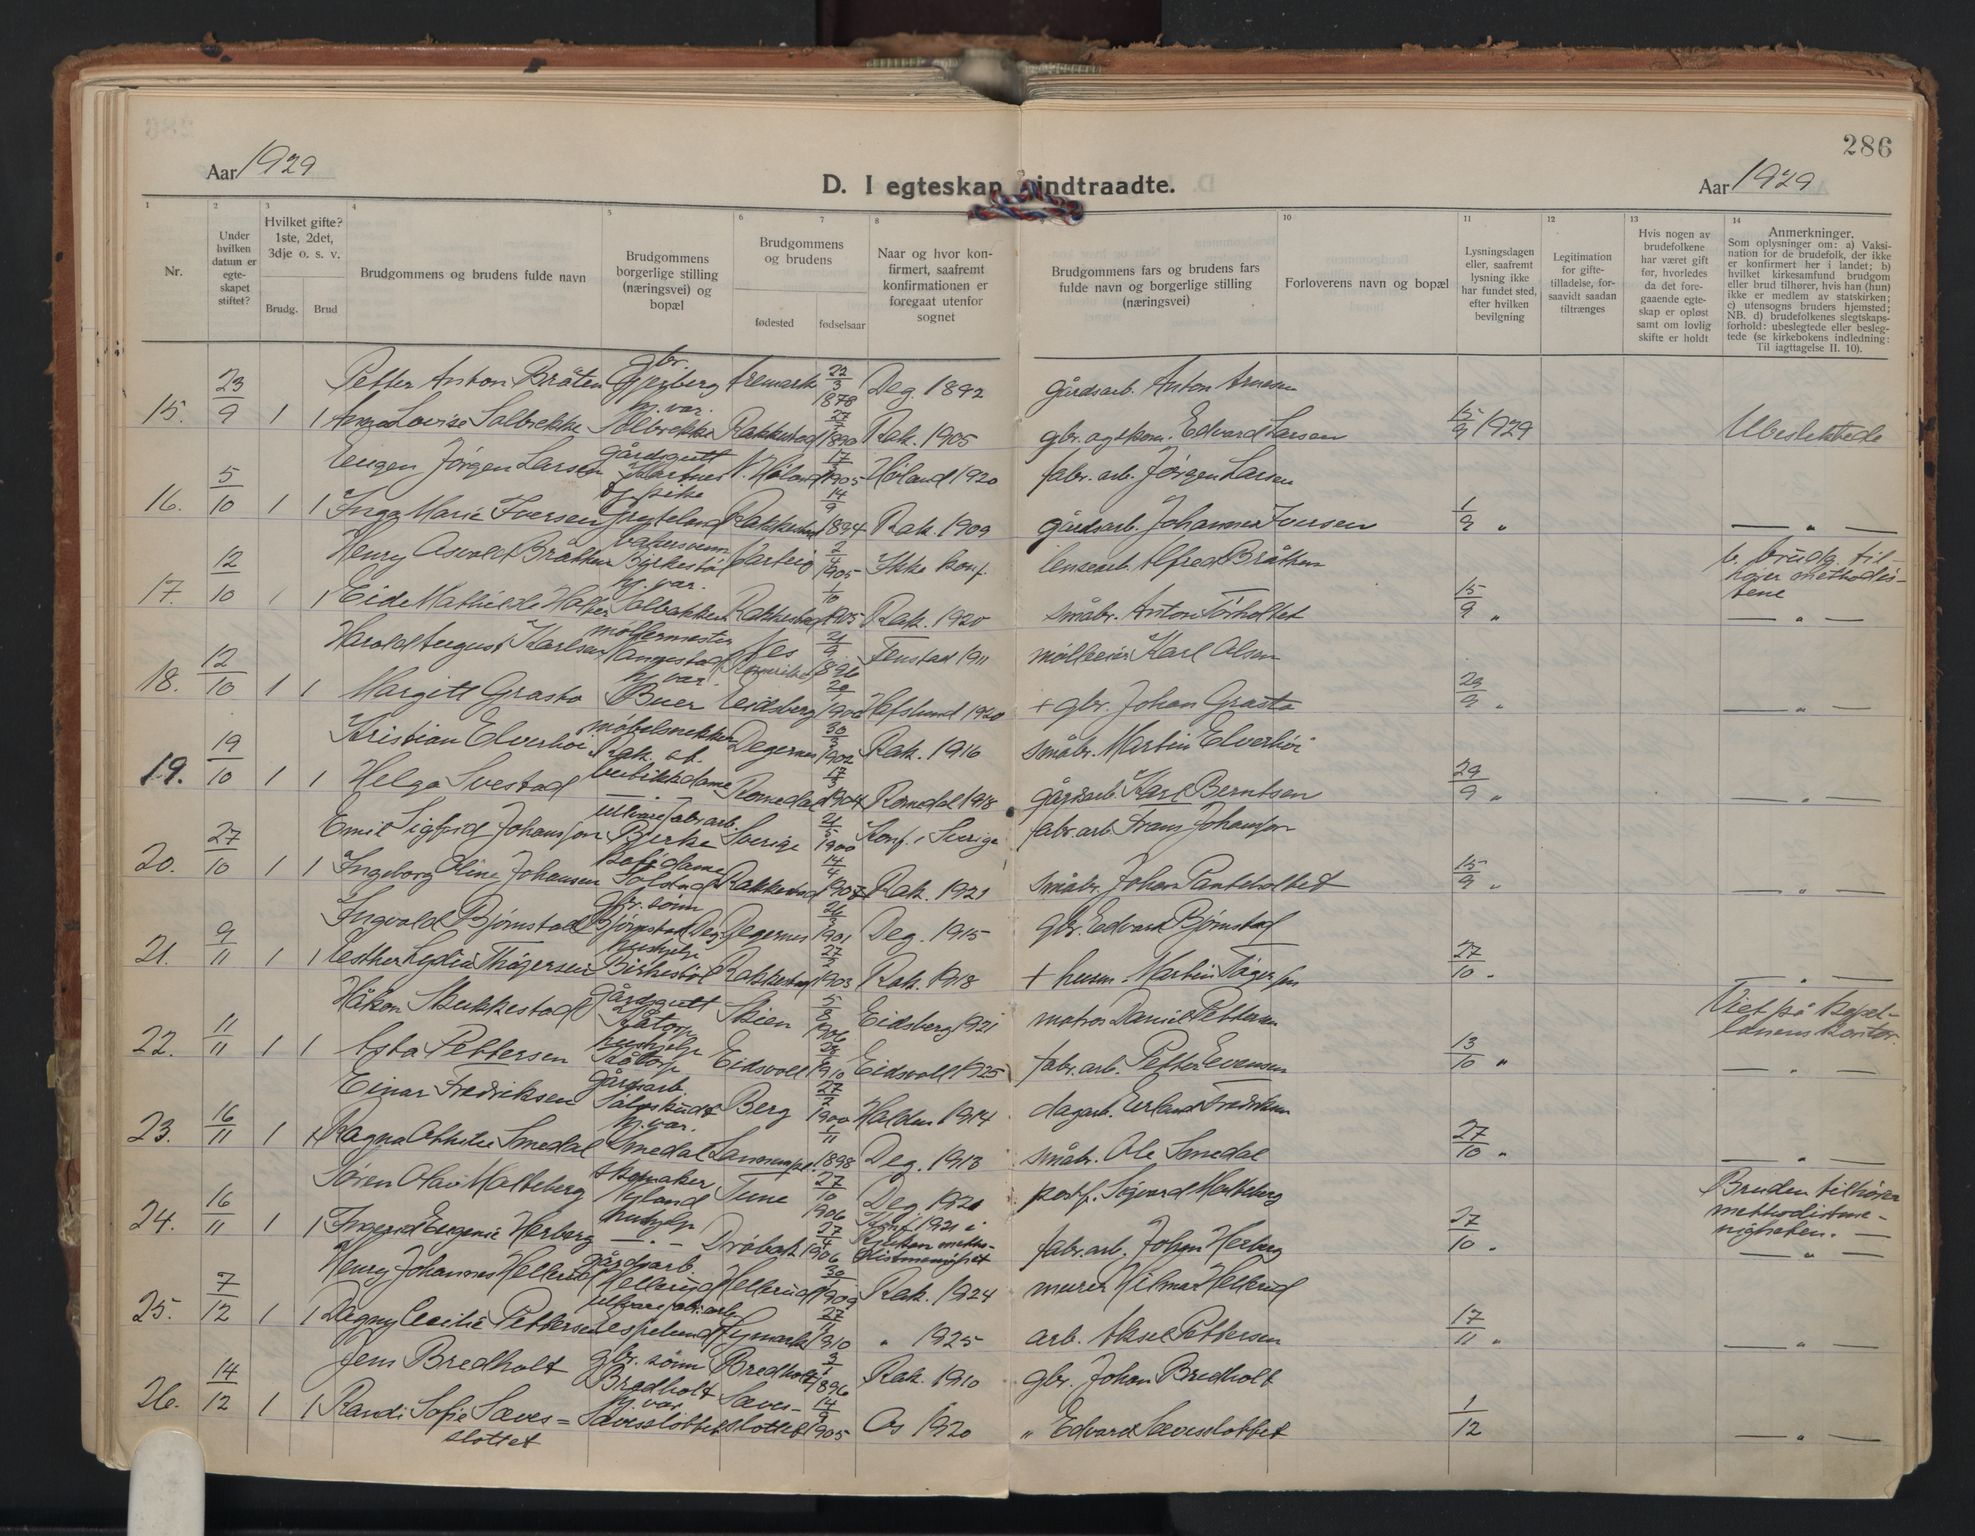 286
Aar 1929
D. I egteskap indtraadte.
Aar 1929
1 2 3 4 5 6 7 8 10 11 12 13 14
Nr.
Under hvilken datum er egteskapet stiftet?
Hvilket gifte? 1ste, 2det, 3dje o. s. v.
Brudg. Brud
Brudgommens og brudens fulde navn
Brudgommens borgerlige stilling (næringsvei) og bopæl
Brudgommens og brudens
fødested fødselsaar
Naar og hvor konfirmert, saafremt konfirmationen er foregaat utenfor sognet
Brudgommens fars og brudens fars fulde navn og borgerlige stilling (næringsvei)
Forloverens navn og bopæl
Lysningsdagen eller, saafremt lysning ikke har fundet sted, efter hvilken bevilgning
Legitimation for giftetilladelse, forsaavidt saadan tiltrænges
Hvis nogen av brudefolkene har været gift før, hvorledes da det foregaaende egteskap er opløst samt om lovlig skifte er holdt
Anmerkninger.
Som oplysninger om: a) Vaksination for de brudefolk, der ikke er konfirmert her i landet; b) hvilket kirkesamfund brudgom eller brud tilhører, hvis han (hun) ikke er medlem av statskirken; c) utensogns bruders hjemsted; NB. d) brudefolkenes slegtskapsforhold: ubeslegtede eller beslegtede (se kirkebokens indledning: Til iagttagelse II. 10).
Petter Anton Bråten gbr. Gjerberg Aremark 22/3 1878 Deg. 1892 gårdsarb. Anton Arnesen
15. 23/9 1 1 Anna Lovise Solbrekke hj. var. Solbrekke Rakkestad 1890 Rak. 1905 gbr. og skom. Edvard Larsen 15/9 1929 Ubeslektede
Eugen Jörgen Larsen gårdsgutt Kartnes N. Höland 17/ 1905 Höland 1920 fabr. arb. Jörgen Larsen
16. 5/10 1 1 Inga Marie Iversen Rakkestad 14/9 1894 Rak. 1909 gårdsarb. Johannes Iversen 1/9 " — " —
Henry Asvald Bråthen Birkestöl Varteig 2/4 1905 Ikke konf. lensearb. Alfred Bråthen b. brudg. tilhører methodistene
17. 12/10 1 1 Eide Mathilde hj. var. Solbakken Rakkestad 1/10 1905 Rak. 1920 småbr. Anton Törholtet 15/9 " — " —
Harald August Karlsen möllermester Nes Romerike 1896 Fenstad 1911 mölleeier Karl Olsen
18. 12/10 1 1 Margitt Grasto hj. var. Buer Eidsberg 1906 Hafslund 1920 + gbr. Johan Grasto 29/9 " — " —
Kristian Elverhöi möbelsnekker Rak. st. Degernes 30/ 1902 Rak. 1916 småbr. Martin Elverhöi
19. 19/10 1 1 Helga Svestad butikkdame Romedal 17/ 1904 Romedal 1918 gårdsarb. Karl Berntsen 29/9 " — " —
Emil Sigfrid Johansson ullvarefabr.arb. Bjerke Sverige 1900 Konf. i Sverige fabr. arb. Frans Johansson
20. 27/10 1 1 Ingeborg Oline Johansen Rakkestad 14/4 1907 Rak. 1921 småbr. Johan Panteholtet 15/9 " — " —
Ingvald Bjørnstad gbr. sönn Bjørnstad Deg. Degernes 1901 Deg. 1915 gbr. Edvard Bjørnstad
21. 9/11 1 1 Esther Lydia Thögersen hushjelp Birkestöl Rakkestad 27/ 1903 Rak. 1918 + husm. Martin Tögersen 27/10 " — " —
Håkon Skukkestad gårdsgutt Skien 5/8 1906 Eidsberg 1921 matros Daniel Pettersen Viet på kapellanens kontor.
22. 11/11 1 1 Asta Pettersen hushjelp Eidsvoll 1910 Eidsvoll 1925 fabr. arb. Petter Evensen 13/10 " — " —
Einar Fredriksen gårdsarb. Berg 27/2 1900 Halden 1914 dagarb. Erland Fredriksen
23. 16/11 1 1 Ragna Othilie Smedal hj. var. Smedal 1/11 1898 Deg. 1913 småbr. Ole Smedal 27/10 " — " —
Sören Olav Malteberg skomaker Nyland Tune 27/10 1906 Deg. 1921 postf. Sigvard Malteberg Bruden tilhører methodistmenigheten.
24. 16/11 1 1 Ingerid Eugenie Herberg hushjelp — " — Dröbak 27/4 1906 Konf. 1921 i Rjukan methodistmenighet fabr. arb. Johan Herberg 27/10 " — " —
Henry Johannes Hellerud gårdsarb. Hellerud Hellerud 30/ 1909 Rak. 1924 murer Hilmar Hellerud
25. 7/12 1 1 Dagny Cecilie Pettersen ullvarefabr.arb. Espelund Nymark 27/11 1910 " 1925 arb. Aksel Pettersen 17/11 " — " —
Jens Bredholt gbr. sönn Bredholt Bredholt 3/1 1896 Rak. 1910 gbr. Johan Bredholt
26. 14/12 1 1 Randi Sofie Sævesslottet hj. var Sævesslottet Sævesslottet 14/9 1905 Os 1920 " Edvard Sævesslottet 1/12 — " —